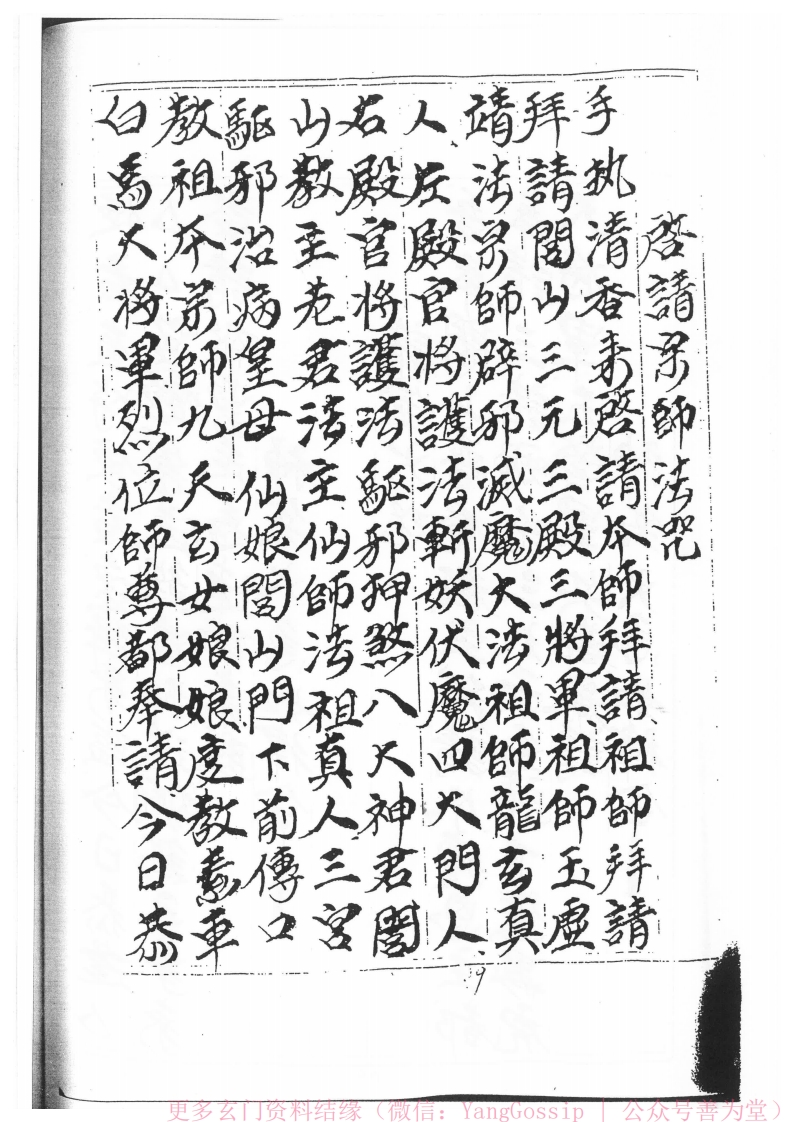 啓請宗師法咒
手执清香来啓請本師拜請祖師拜請
拜請閭山三元三殿三將軍祖師玉虛
靖法宗師辟邪滅魔大法祖師龍玄真
人左殿官將護法斬妖伏魔四大門人
右殿官將護法驅邪押煞八大神君閭
山教主老君法主仙師法祖真人三宮
驅邪治病皇母仙娘閭山門下前傳口
教祖本宗師九天玄女娘娘度教車
白馬大將軍烈位師尊都奉請今日恭
9
更多玄门资料结缘（微信：YangGossip | 公众号善为堂）